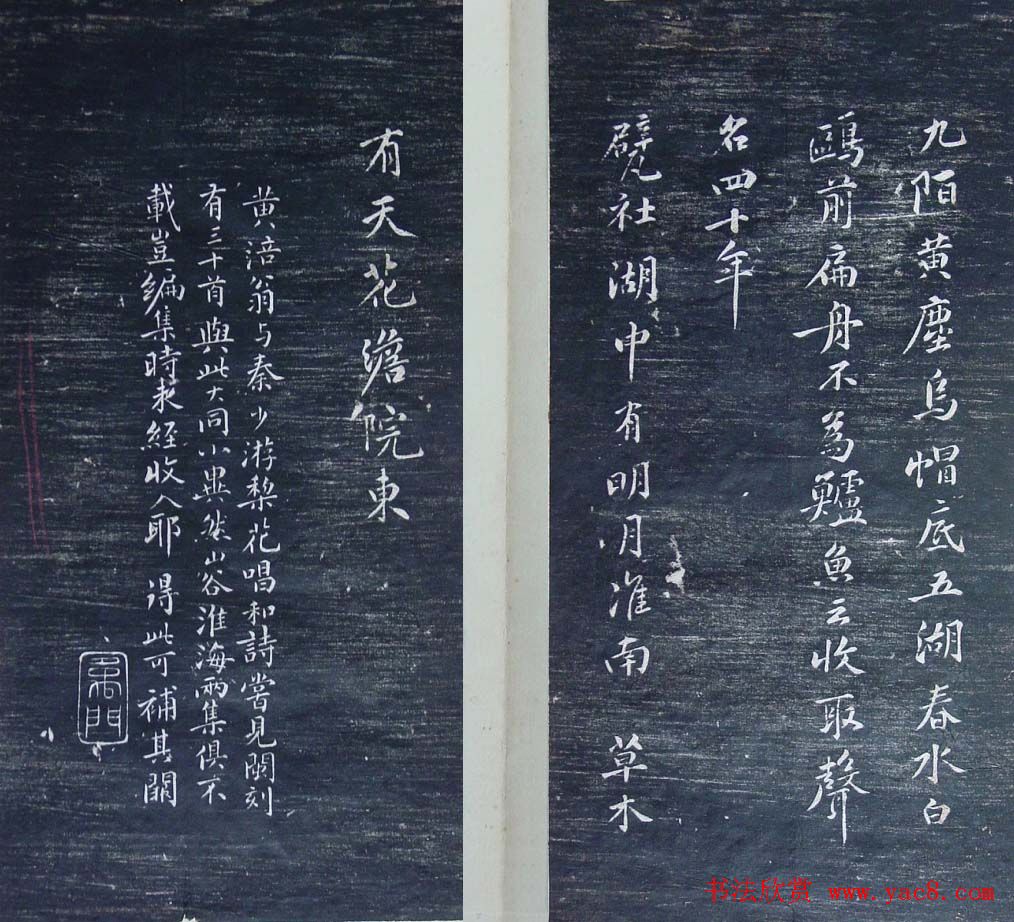 九陌黄塵烏帽底五湖春水白
鷗前扁舟不為鱸魚去收取聲
名四十年
甓社湖中有明月淮南 草木
有天花簷院東
黄涪翁与秦少游梨花唱和詩嘗見閣刻
有三十首與此大同小異然山谷淮海兩集俱不
載豈編集時未經收入耶 得此可補其闕
书法欣赏 www.yac8.com